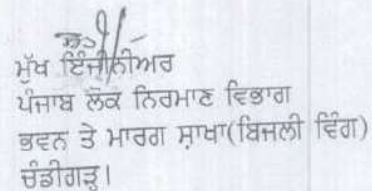 ਮੁੱਖ ਇੰਜੀਨੀਅਰ
ਪੰਜਾਬ ਲੋਕ ਨਿਰਮਾਣ ਵਿਭਾਗ
ਭਵਨ ਤੇ ਮਾਰਗ ਸ਼ਾਖਾ(ਬਿਜਲੀ ਵਿੰਗ)
ਚੰਡੀਗੜ੍ਹ।